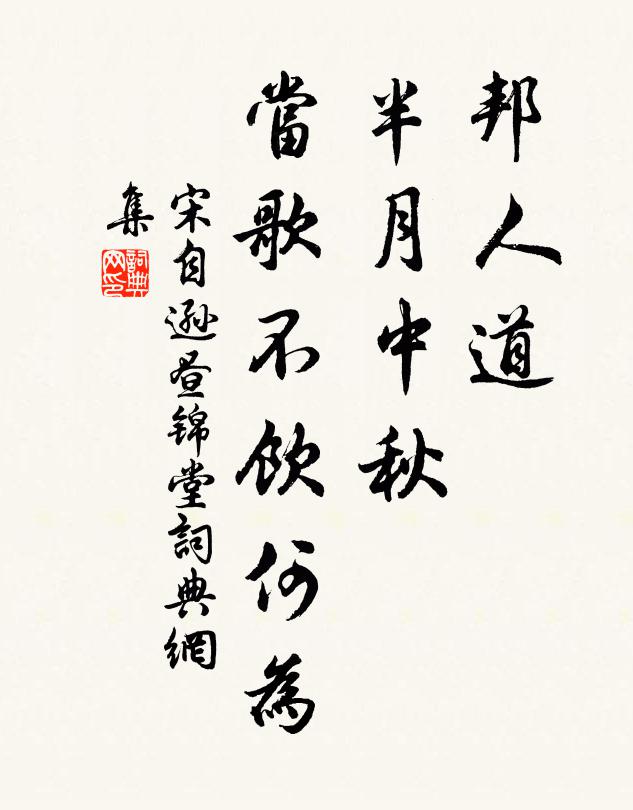 邦人道
半月中秋
當歌不飲何為
宋自遜昼锦堂詞典網
集
詞典网印